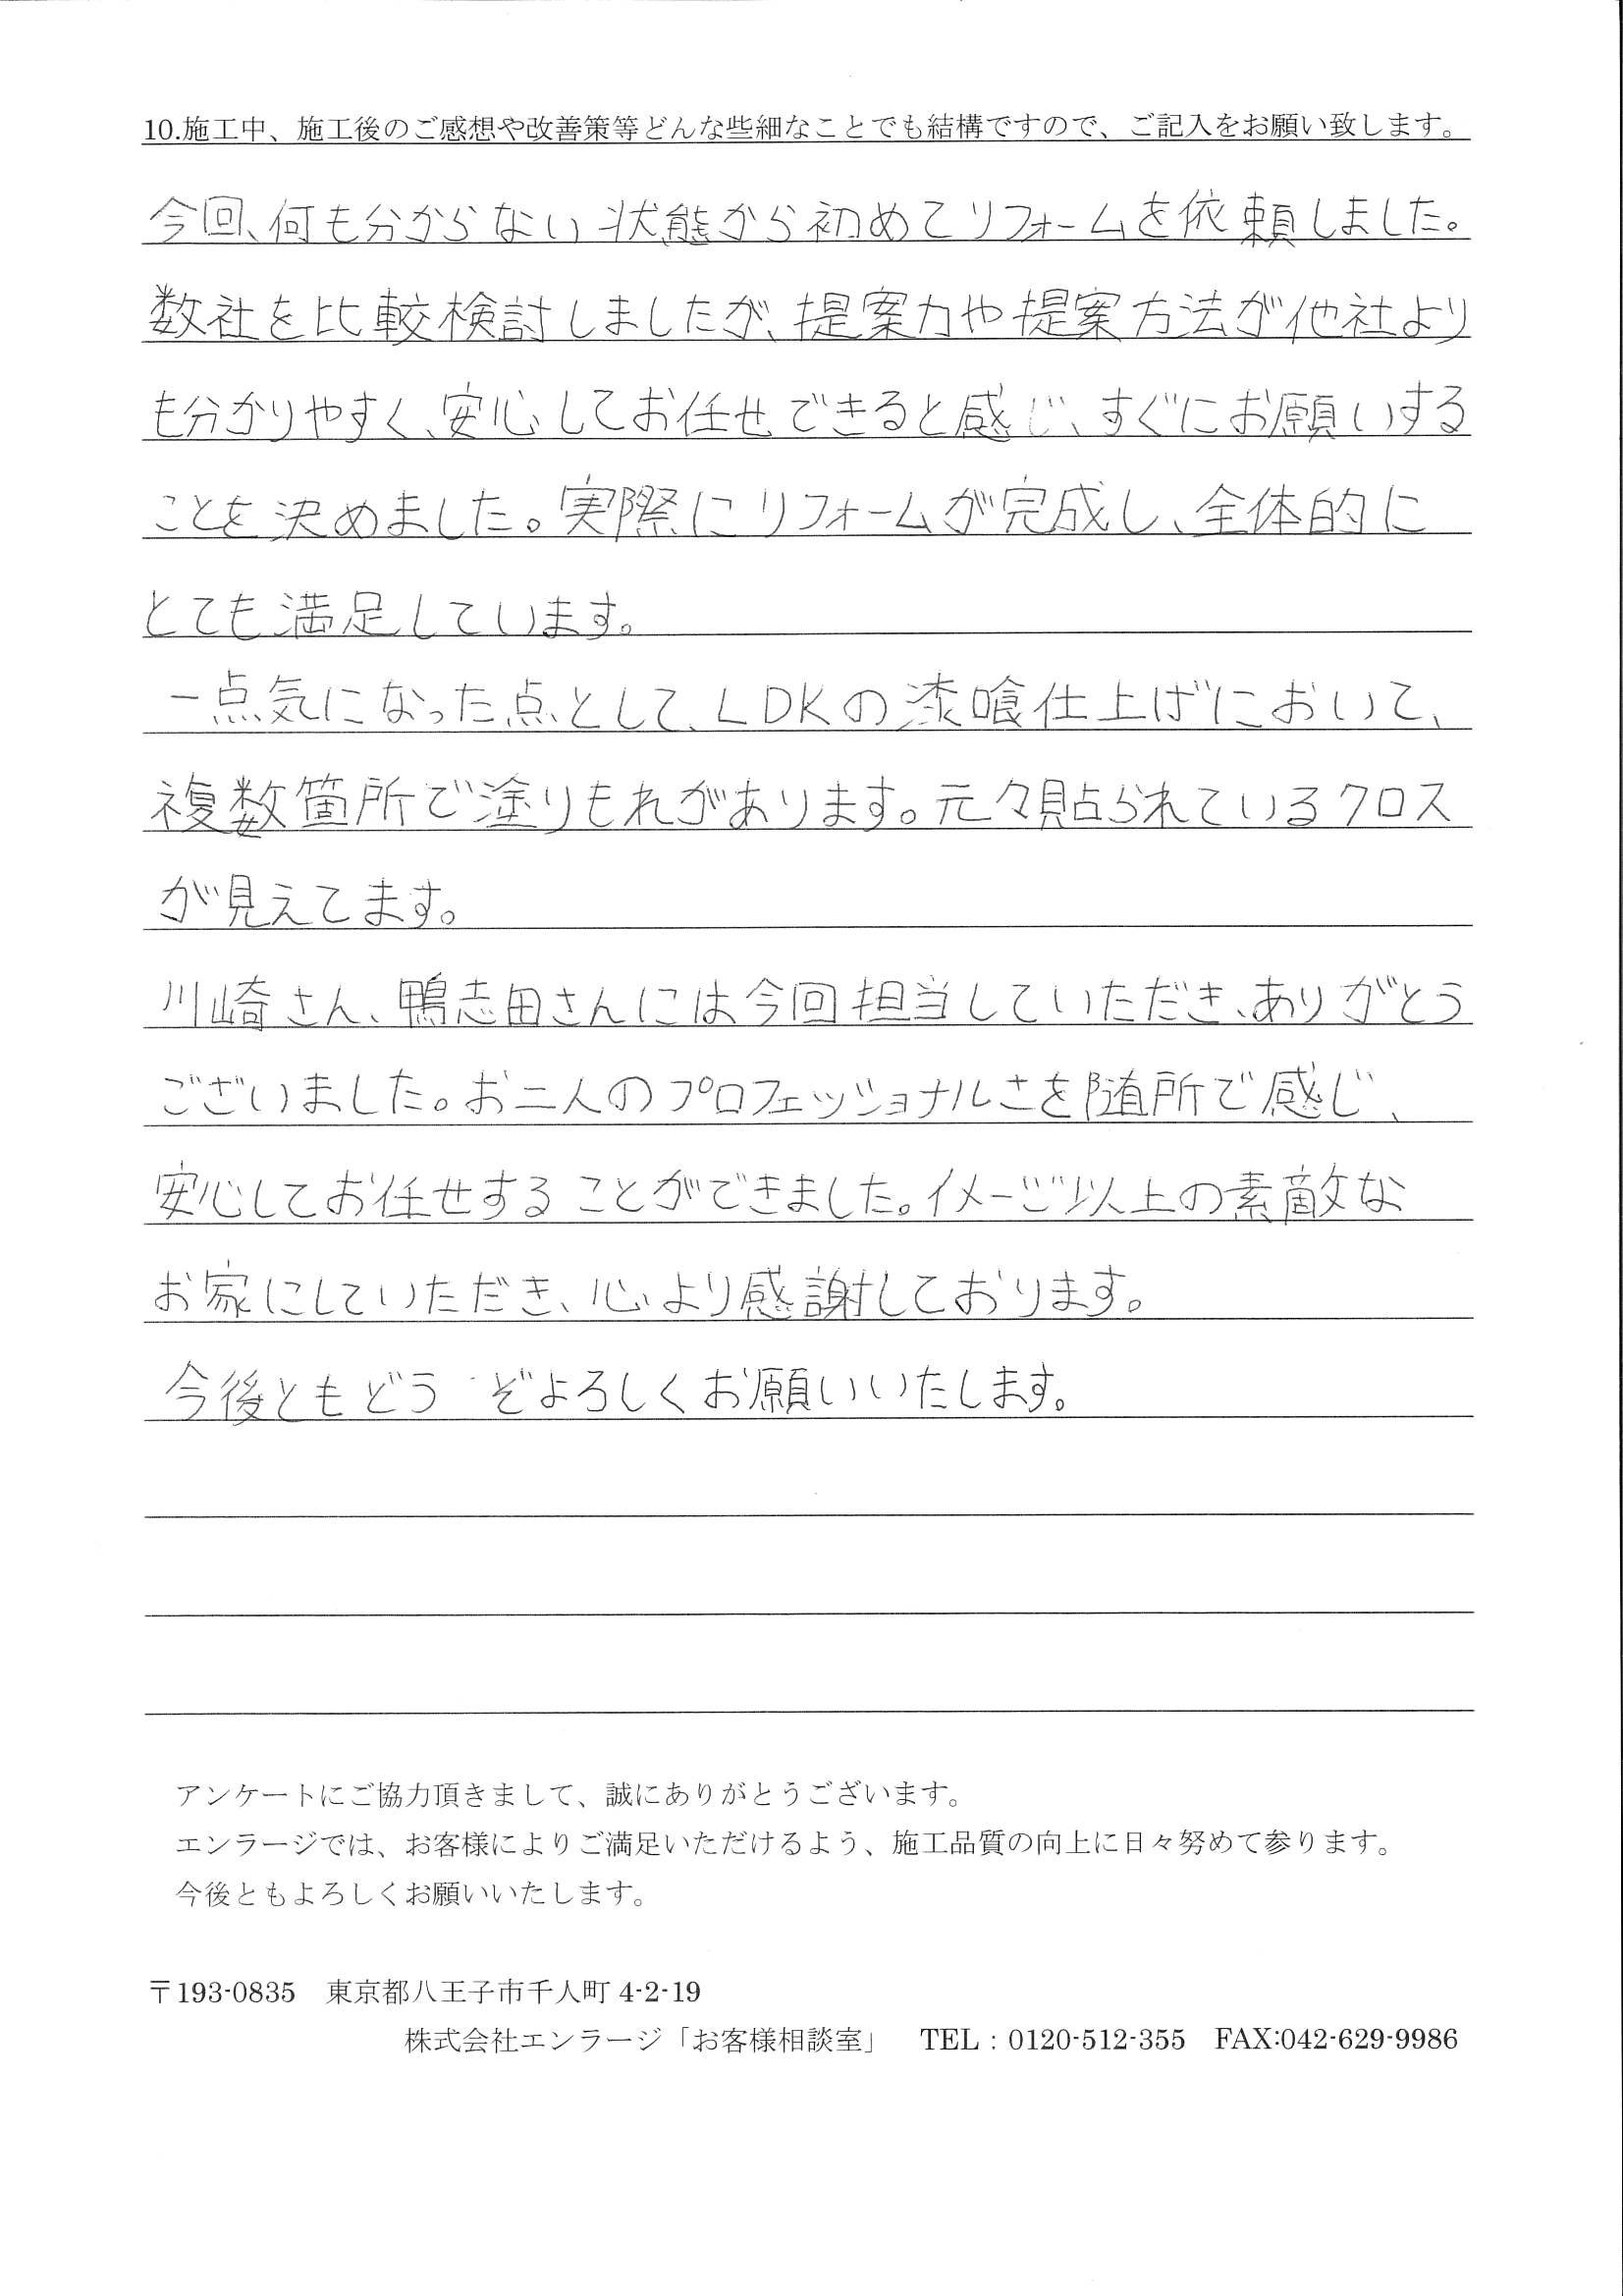 10.施工中、施工後のご感想や改善策等どんな些細なことでも結構ですので、ご記入をお願い致します。
今回、何も分からない状態から初めてリフォームを依頼しました。
数社を比較検討しましたが、提案力や提案方法が他社より
も分かりやすく、安心してお任せできると感じ、すぐにお願いする
ことを決めました。実際にリフォームが完成し、全体的に
とても満足しています。
一点気になった点として、LDKの漆喰仕上げにおいて、
複数箇所で塗りもれがあります。元々貼られているクロス
が見えてます。
川崎さん、鴨志田さんには今回担当していただき、ありがとう
ございました。お二人のプロフェッショナルさを随所で感じ、
安心してお任せすることができました。イメージ以上の素敵な
お家にしていただき、心より感謝しております。
今後ともどうぞよろしくお願いいたします。
アンケートにご協力頂きまして、誠にありがとうございます。
エンラージでは、お客様によりご満足いただけるよう、施工品質の向上に日々努めて参ります。
今後ともよろしくお願いいたします。
〒193-0835 東京都八王子市千人町 4-2-19
株式会社エンラージ「お客様相談室」 TEL：0120-512-355 FAX:042-629-9986